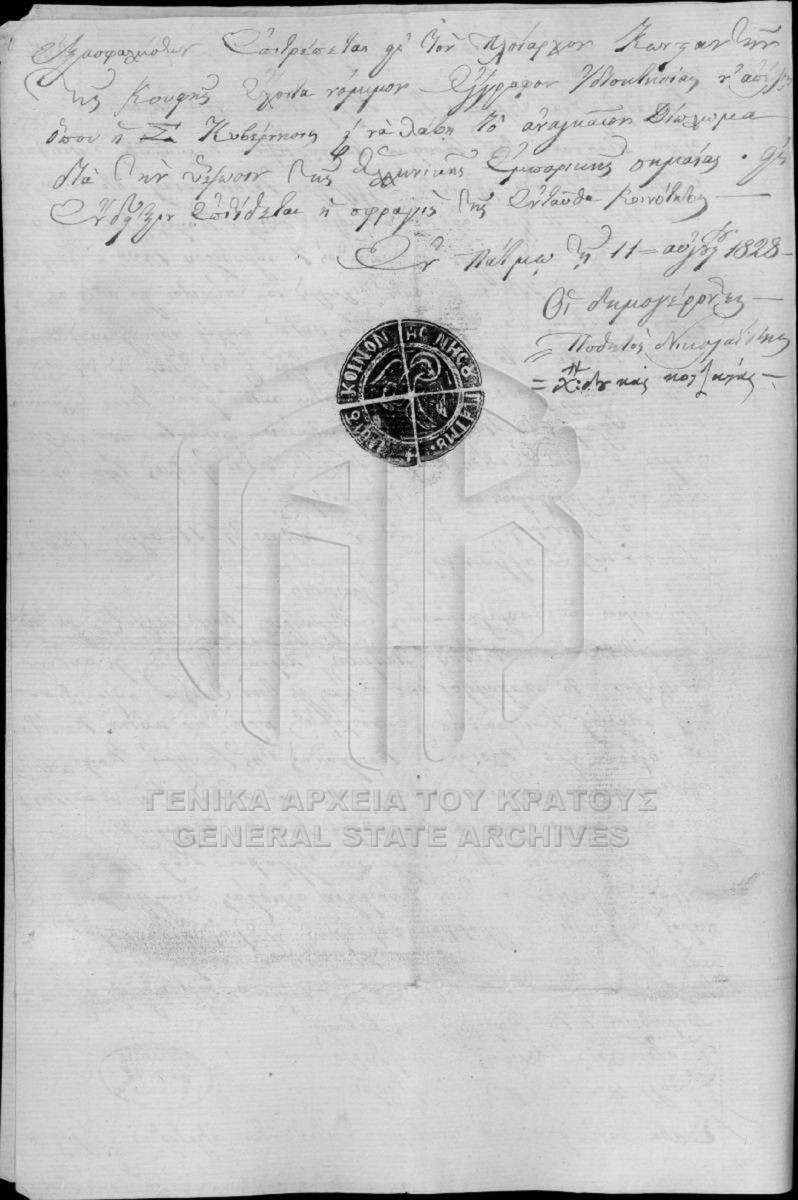 ἐξασφαλιστῶν ἐπιτρέπεται εἰς τὸν πλοίαρχον Κωνσταντῆν
τῆς Κουφῆς ἔχοντα νόμιμον ἔγγραφον ἰδιοκτησίας
ὅπου ἡ Σ. Κυβέρνησις νὰ λάβῃ τὸ ἀναγκαῖον δίπλωμα
διὰ τὴν ὕψωσιν τῆς ἑλληνικῆς ἐμπορικῆς σημαίας· εἰς
ἔνδειξιν ἐπιτίθεται ἡ σφραγὶς τῆς ἐνταῦθα κοινότητος —
Ἐν Πάτμῳ τῇ 11 = αὐγούστου 1828 –
Οἱ δημογέροντες —
Ποθητὸς Νικολαΐδης
ΚΟΙΝΟΝ ΤΗϹ ΝΗϹȣ
ΓΕΝΙΚΑ ΑΡΧΕΙΑ ΤΟΥ ΚΡΑΤΟΥΣ
GENERAL STATE ARCHIVES